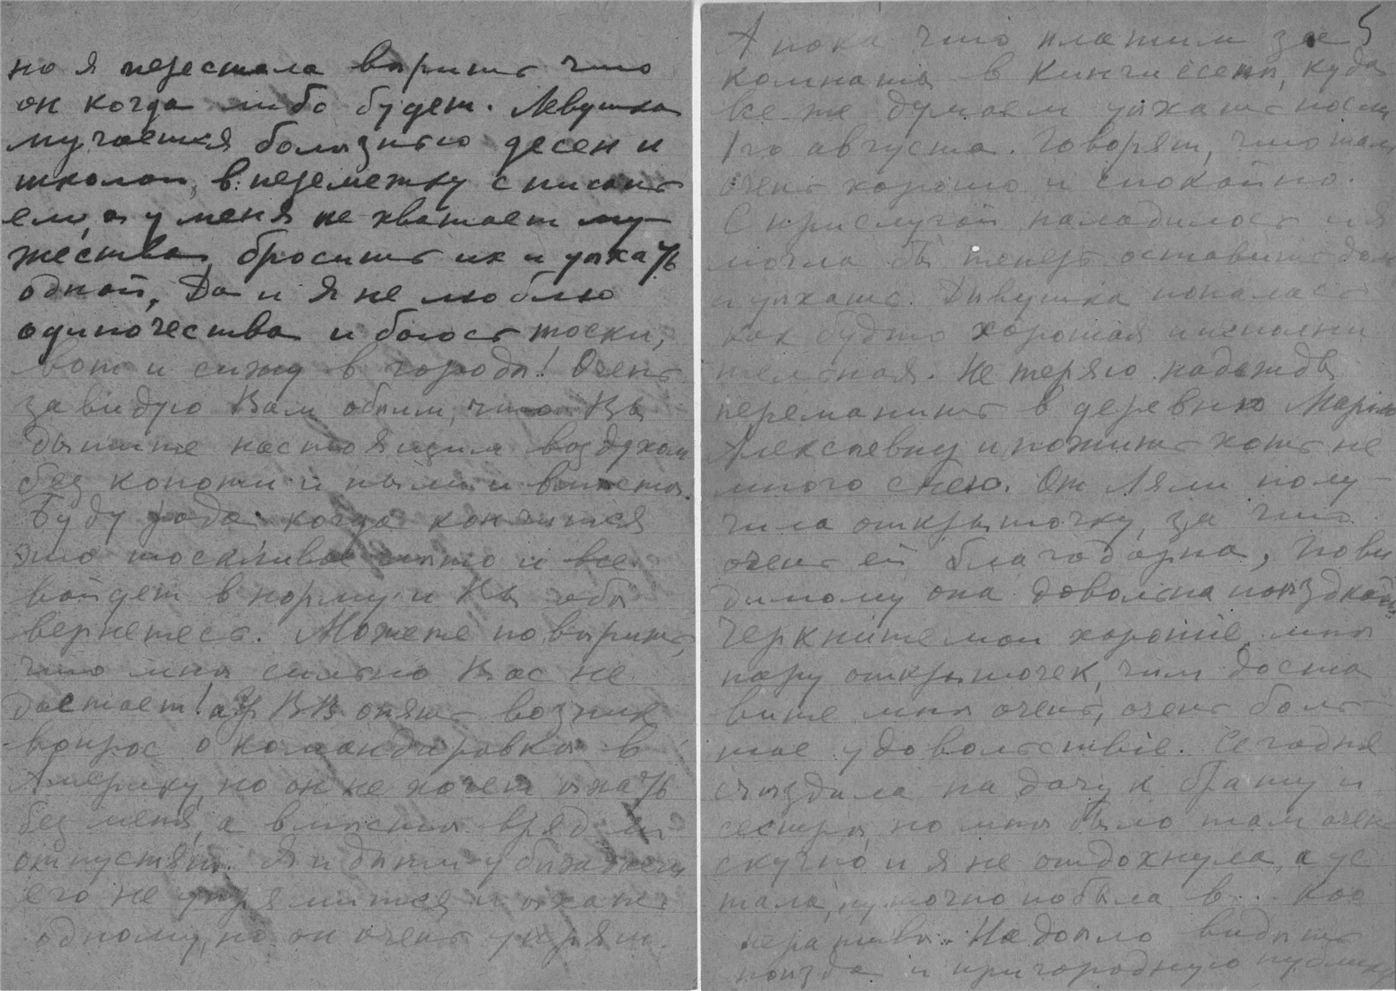 но я перестала вѣрить что
он когда либо будет. Левушка
мучается болѣзнью десен и
школой, в перемежку с писант
ем, а у меня не хватает му-
жества бросить их и уѣхать
одной, Да и я не люблю
одиночества и боюсь тоски,
вот и сижу в городѣ! Очень
завидую Вам обѣим, что Вы
дышите настоящим воздухом
без копоти и пыли и вмѣстѣ.
Буду рада когда кончится
это тоскливое лѣто и все
войдет в норму и Вы обѣ
вернетесь. Можете повѣрить,
что мнѣ сильно Вас не
достает! а у ВВ опять возник
вопрос о командировкѣ в
Америку, но он не хочет ѣхать
без меня, а вмѣстѣ врядли
отпустят. Я и дѣти убѣждаем
его не упрямиться и ѣхать
одному, но он очень упрям.
А пока что платим за 5
комнаты в Кингисеппѣ, куда
все же думаем уѣхать послѣ
1го августа. Говорят, что там
очень хорошо и спокойно.
С прислугой наладилось и я
могла бы теперь оставить дом
и уѣхать. Дѣвушка попалась
как будто хорошая и исполни
тельная. Не теряю надежды
переманить в деревню Марию
Алексѣевну и пожить хоть не
много с нею. От Ляли полу-
чила открыточку, за что
очень ей благодарна, Пови
димому она довольна поѣздкой.
Черкните мои хорошіе, мнѣ
пару открыточек, чѣм доста
вите мнѣ очень, очень боль
шое удовольствіе. Сегодня
съѣздила на дачу к брату и
сестрѣ, но мнѣ было там очень
скучно и я не отдохнула, а ус
тала, точно побыла в.. коо
перативѣ. Надоѣло видѣть
поѣзда и пригородную публику